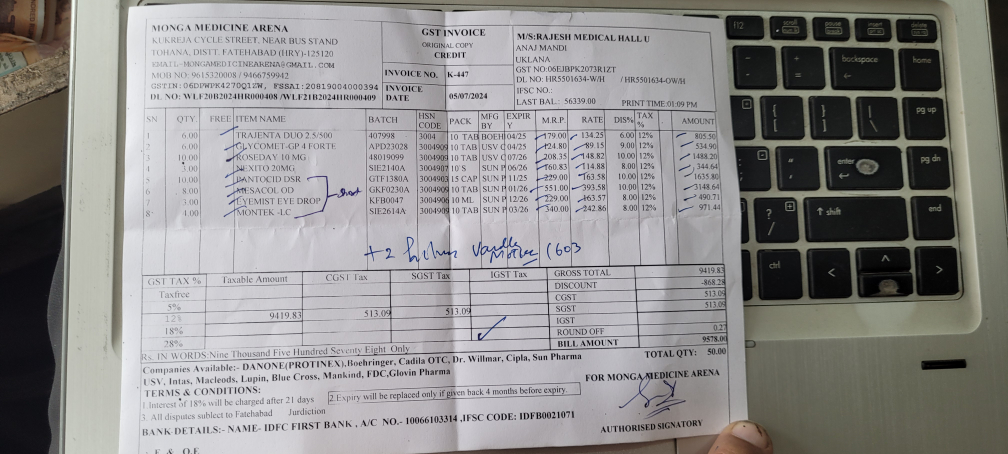 MONGA MEDICINE ARENA
KUKREJA CYCLE STREET, NEAR BUS STAND
TOHANA, DISTT. FATEHABAD (HRY)-125120
EMAIL-MONGAMEDICINEARENA@GMAIL.COM
MOB NO: 9615320008 / 9466759942
GSTIN:06DPWPK4270Q1ZW, FSSAI:20819004000394
DL NO: WLF20B2024HR000408 /WLF21B2024HR000409
GST INVOICE
ORIGINAL COPY
CREDIT
INVOICE NO. K-447
INVOICE DATE 05/07/2024
M/S:RAJESH MEDICAL HALL U
ANAJ MANDI
UKLANA
GST NO:06EJBPK2073R1ZT
DL NO: HR5501634-W/H / HR5501634-OW/H
IFSC NO.:
LAST BAL.: 56339.00 PRINT TIME:01:09 PM
SN QTY. FREE ITEM NAME BATCH HSN CODE PACK MFG BY EXPIRY M.R.P. RATE DIS% TAX % AMOUNT
1 6.00 TRAJENTA DUO 2.5/500 407998 3004 10 TAB BOEH 04/25 179.00 134.25 6.00 12% 805.50
2 6.00 GLYCOMET-GP 4 FORTE APD23028 3004909 10 TAB USV C 04/25 124.80 89.15 9.00 12% 534.90
3 10.00 ROSEDAY 10 MG 48019099 3004909 10 TAB USV C 07/26 208.35 148.82 10.00 12% 1488.20
4 3.00 NEXITO 20MG SIE2140A 3004909 10'S SUN P 06/26 160.83 114.88 8.00 12% 344.64
5 10.00 PANTOCID DSR GTF1380A 3004903 15 CAP SUN P 11/25 229.00 163.58 10.00 12% 1635.80
6 8.00 MESACOL OD GKF0230A 3004909 10 TAB SUN P 01/26 551.00 393.58 10.00 12% 3148.64
7 3.00 EYEMIST EYE DROP KFB0047 3004906 10 ML SUN P 12/26 229.00 163.57 8.00 12% 490.71
8 4.00 MONTEK -LC SIE2614A 3004909 10 TAB SUN P 03/26 340.00 242.86 8.00 12% 971.44
short
+2
GST TAX % Taxable Amount CGST Tax SGST Tax IGST Tax
Taxfree
5%
12% 9419.83 513.09 513.09
18%
28%
GROSS TOTAL 9419.83
DISCOUNT -868.28
CGST 513.09
SGST 513.09
IGST
ROUND OFF 0.27
BILL AMOUNT 9578.00
Rs. IN WORDS:Nine Thousand Five Hundred Seventy Eight Only
TOTAL QTY: 50.00
Companies Available:- DANONE(PROTINEX),Boehringer, Cadila OTC, Dr. Willmar, Cipla, Sun Pharma
USV, Intas, Macleods, Lupin, Blue Cross, Mankind, FDC,Glovin Pharma
TERMS & CONDITIONS:
1.Interest of 18% will be charged after 21 days
2.Expiry will be replaced only if given back 4 months before expiry.
3. All disputes subject to Fatehabad Jurdiction
FOR MONGA MEDICINE ARENA
BANK DETAILS:- NAME- IDFC FIRST BANK , A/C NO.- 10066103314 ,IFSC CODE: IDFB0021071
AUTHORISED SIGNATORY
E. & O.E
f12
scroll
pause
insert
delete
backspace
home
pg up
enter
pg dn
shift
end
ctrl